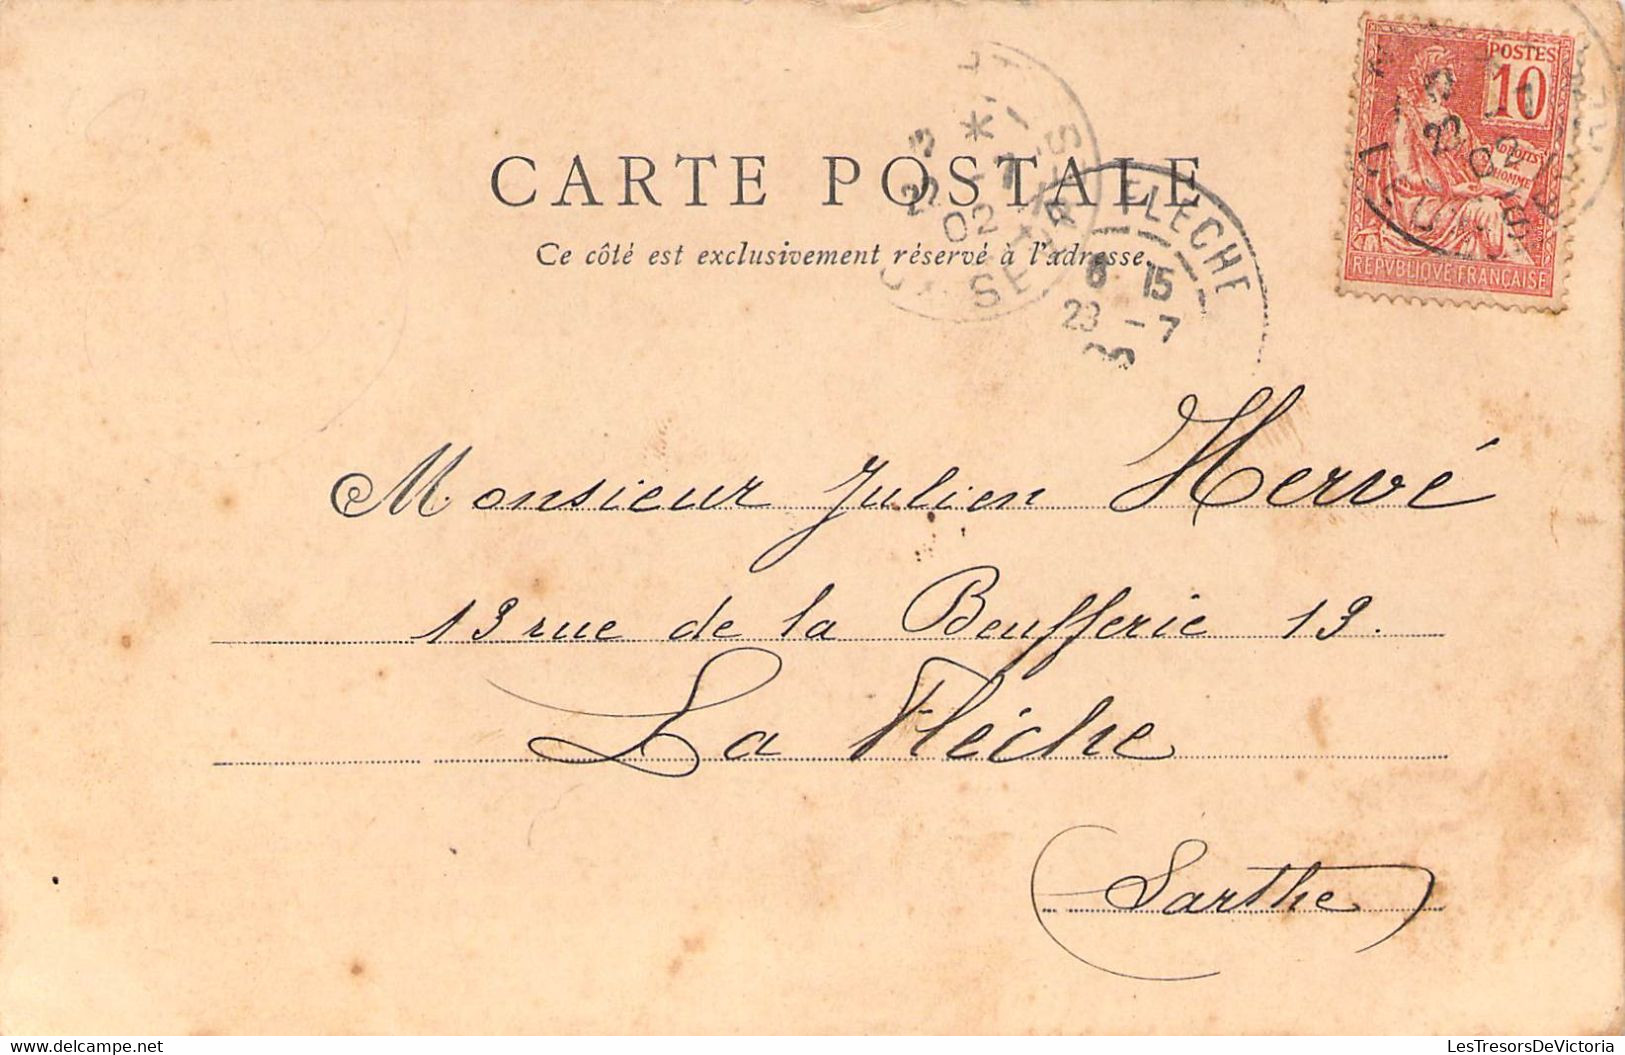 CARTE POSTALE
Ce côté est exclusivement réservé à l'adresse
POSTES
10
DROITS
DE
L'HOMME
REPVBLIQVE FRANÇAISE
FLECHE
6 15
23 - 7
02
Monsieur Julien Hervé
13 rue de la Beufferie 13.
La Flèche
(Sarthe)
LesTresorsDeVictoria